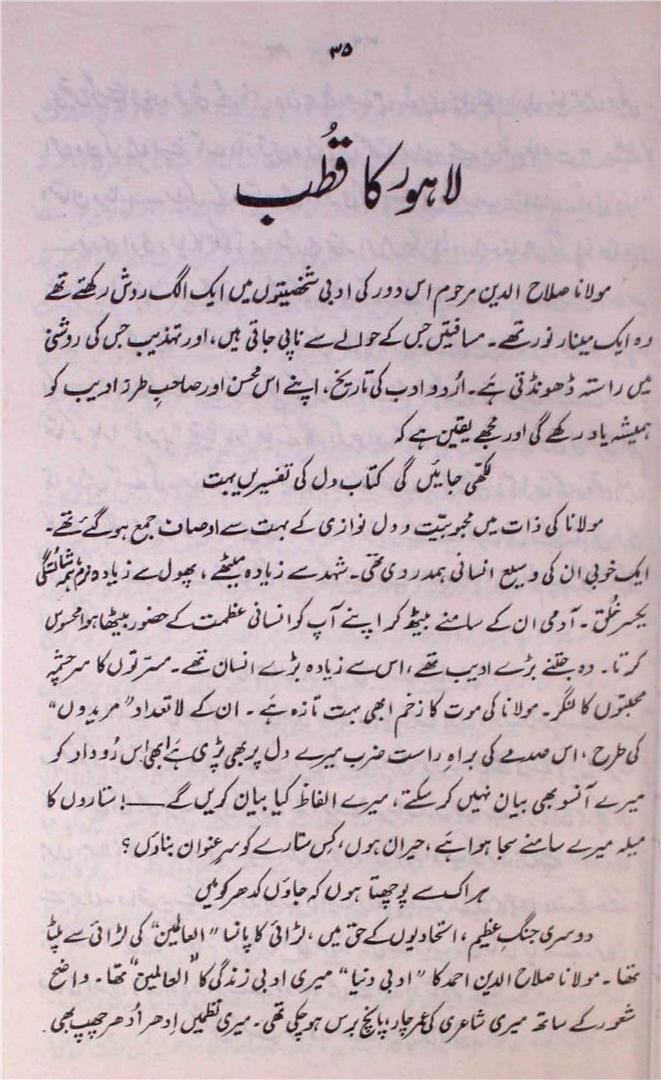 ۳۵
لاہور کا قُطب
مولانا صلاح الدین مرحوم اس دور کی ادبی شخصیتوں میں ایک الگ روش رکھتے تھے
وہ ایک مینارِ نور تھے۔ مسافتیں جس کے حوالے سے ناپی جاتی ہیں، اور تہذیب جس کی روشنی
میں راستہ ڈھونڈتی ہے۔ اُردو ادب کی تاریخ، اپنے اس محسن اور صاحبِ طرز ادیب کو
ہمیشہ یاد رکھے گی اور مجھے یقین ہے کہ
لکھی جائیں گی کتابِ دل کی تفسیریں بہت
مولانا کی ذات میں محبوبیّت و دل نوازی کے بہت سے اوصاف جمع ہو گئے تھے۔
ایک خوبی ان کی وسیع انسانی ہمدردی تھی۔ شہد سے زیادہ میٹھے، پھول سے زیادہ نرم، ہمہ شائستگی
یکسر خُلق۔ آدمی ان کے سامنے بیٹھ کر اپنے آپ کو انسانی عظمت کے حضور بیٹھا ہوا محسوس
کرتا۔ وہ جتنے بڑے ادیب تھے، اس سے زیادہ بڑے انسان تھے۔ مسرتوں کا سرچشمہ
محبتوں کا لنگر۔ مولانا کی موت کا زخم ابھی بہت تازہ ہے۔ ان کے لاتعداد "مریدوں"
کی طرح، اس صدمے کی براہِ راست ضرب میرے دل پر بھی پڑی ہے ابھی اِس رُوداد کو
میرے آنسو بھی بیان نہیں کر سکتے، میرے الفاظ کیا بیان کریں گے ——! ستاروں کا
میلہ میرے سامنے سجا ہوا ہے، حیران ہوں، کس ستارے کو سرِ عنوان بناؤں؟
ہر اک سے پوچھتا ہوں کہ جاؤں کدھر کو میں
دوسری جنگِ عظیم، اتحادیوں کے حق میں، لڑائی کا پانسا "العالمین" کی لڑائی سے پلٹا
تھا۔ مولانا صلاح الدین احمد کا "ادبی دنیا" میری ادبی زندگی کا "العالمین" تھا۔ واضح
شعور کے ساتھ میری شاعری کی عمر چار پانچ برس ہو چکی تھی۔ میری نظمیں اِدھر اُدھر چھپ بھی